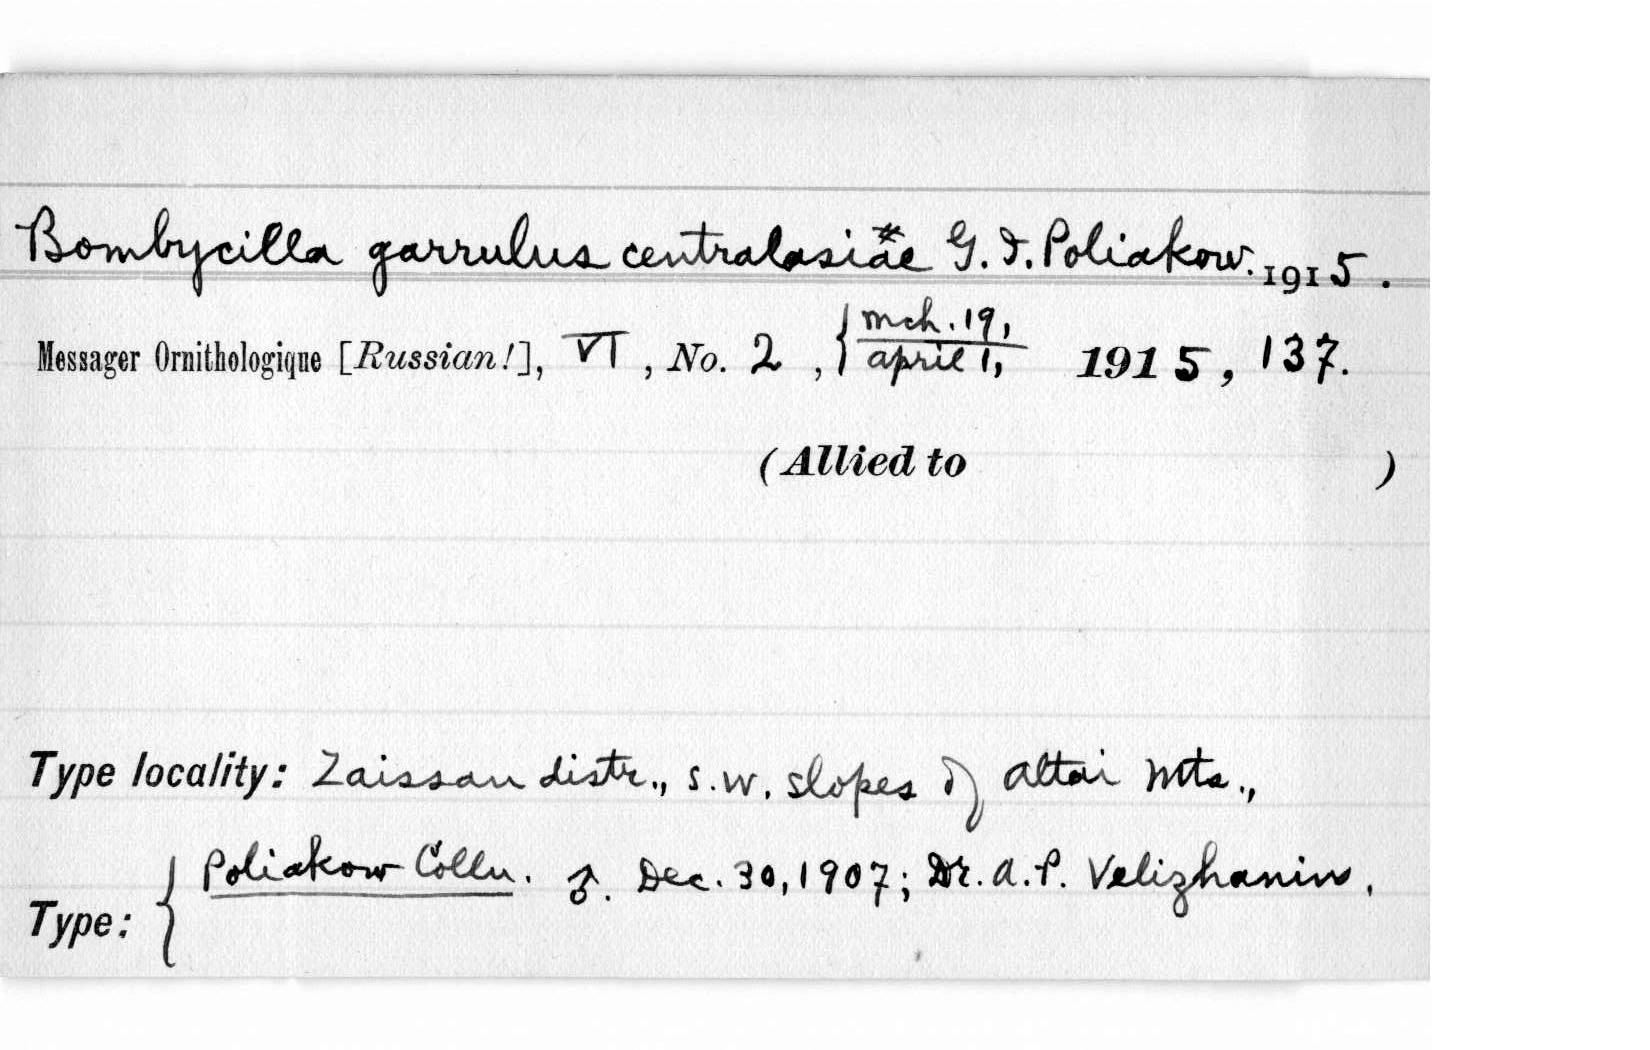 Bombycilla garrulus centralasiæ* G. I. Poliakow. 1915.
Messager Ornithologique [Russian!], VI, No. 2, { mch. 19, / april 1, 1915, 137.
(Allied to )
Type locality: Zaissan distr., s.w. slopes of Altai Mts.,
Type: { Poliakow Colln. ♂. Dec. 30, 1907; Dr. A. P. Velizhanin.